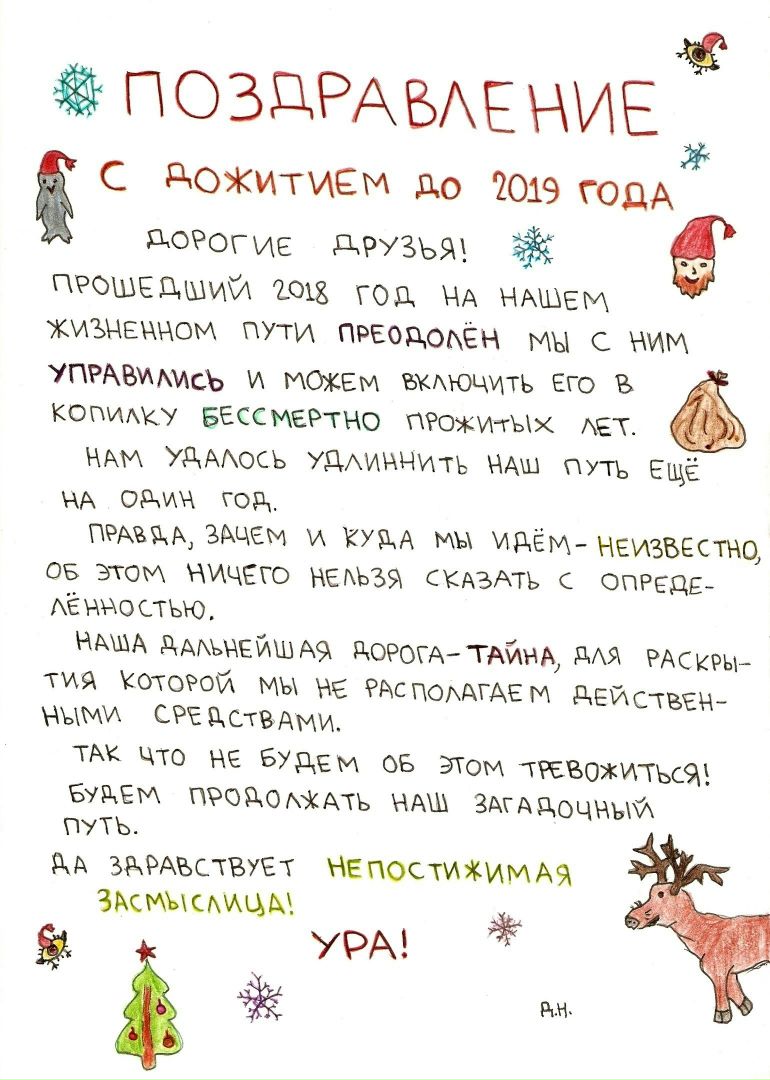 ПОЗДРАВЛЕНИЕ
С ДОЖИТИЕМ ДО 2019 ГОДА
ДОРОГИЕ ДРУЗЬЯ!
ПРОШЕДШИЙ 2018 ГОД НА НАШЕМ
ЖИЗНЕННОМ ПУТИ ПРЕОДОЛЁН МЫ С НИМ
УПРАВИЛИСЬ И МОЖЕМ ВКЛЮЧИТЬ ЕГО В
КОПИЛКУ БЕССМЕРТНО ПРОЖИТЫХ ЛЕТ.
НАМ УДАЛОСЬ УДЛИННИТЬ НАШ ПУТЬ ЕЩЁ
НА ОДИН ГОД.
ПРАВДА, ЗАЧЕМ И КУДА МЫ ИДЁМ - НЕИЗВЕСТНО,
ОБ ЭТОМ НИЧЕГО НЕЛЬЗЯ СКАЗАТЬ С ОПРЕДЕ-
ЛЁННОСТЬЮ.
НАША ДАЛЬНЕЙШАЯ ДОРОГА - ТАЙНА, ДЛЯ РАСКРЫ-
ТИЯ КОТОРОЙ МЫ НЕ РАСПОЛАГАЕМ ДЕЙСТВЕН-
НЫМИ СРЕДСТВАМИ.
ТАК ЧТО НЕ БУДЕМ ОБ ЭТОМ ТРЕВОЖИТЬСЯ!
БУДЕМ ПРОДОЛЖАТЬ НАШ ЗАГАДОЧНЫЙ
ПУТЬ.
ДА ЗДРАВСТВУЕТ НЕПОСТИЖИМАЯ
ЗАСМЫСЛИЦА!
УРА!
Д.Н.